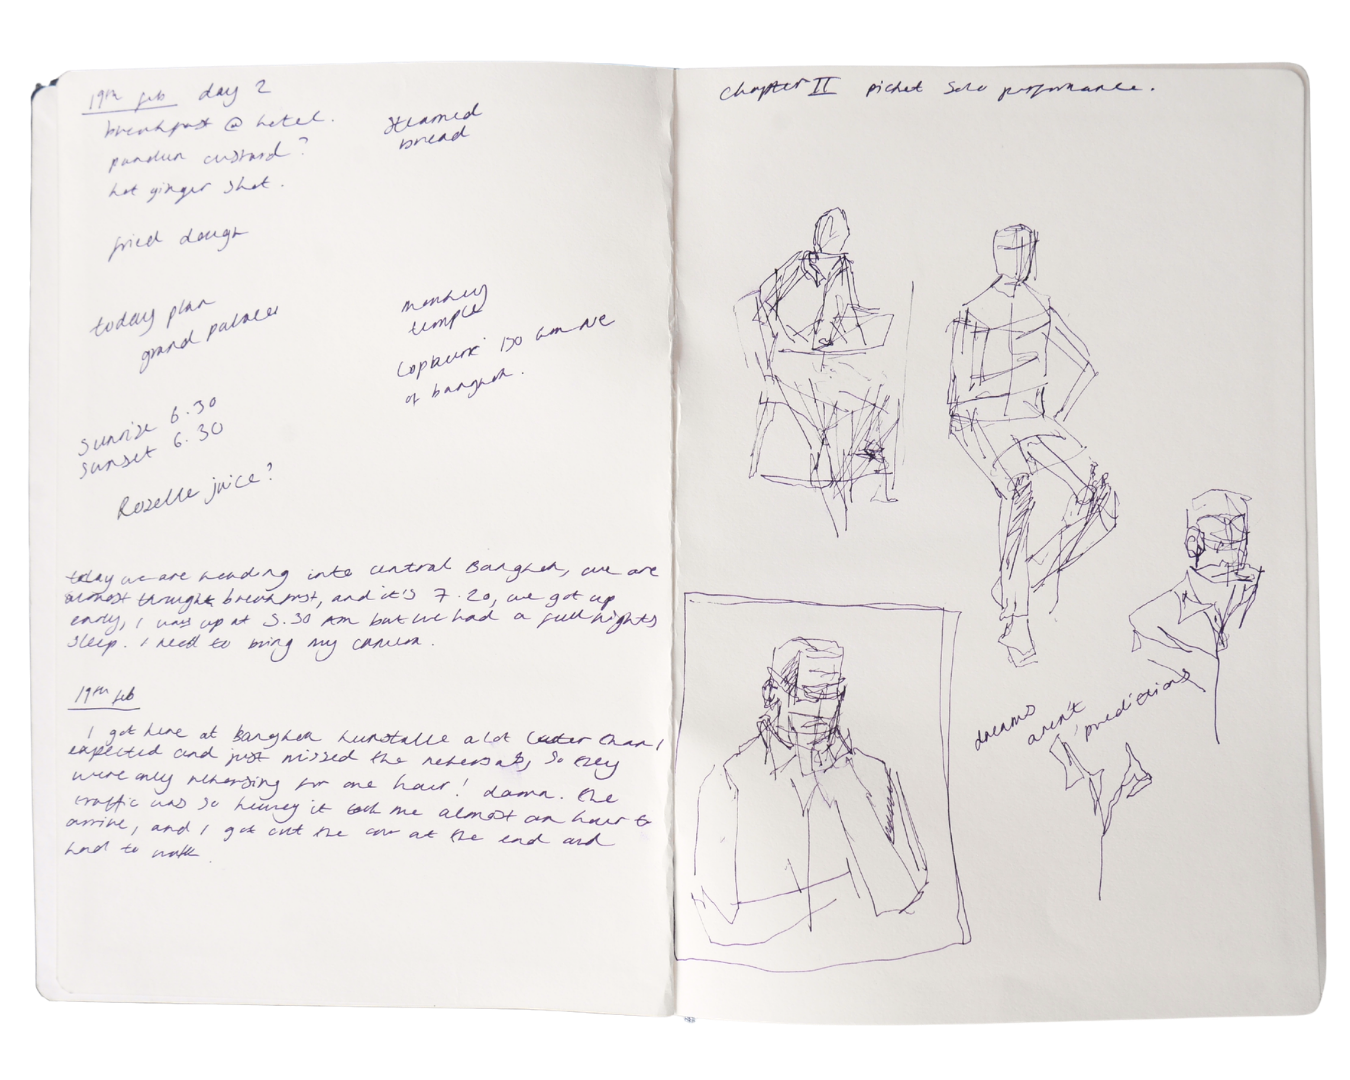 19th feb day 2
breakfast @ hotel.
steamed
bread
pandun custard?
hot ginger shot.
fried dough
today plan
grand palace
monkey
temple
Lopburi 150 km NE
of bangkok.
Sunrise 6.30
Sunset 6.30
Rozelle juice?
today we are heading into central Bangkok, we are
almost through breakfast, and it's 7.20, we got up
early, I was up at 5.30 AM but we had a full nights
sleep. I need to bring my camera.
19th feb
I got here at Bangkok kunsthalle a lot later than I
expected and just missed the rehersals, so they
were only rehersing for one hour! damn. the
traffic was so heavy it took me almost an hour to
arrive, and I got out the car at the end and
had to walk.
chapter II pichet solo performance.
dreams
aren't
predictions